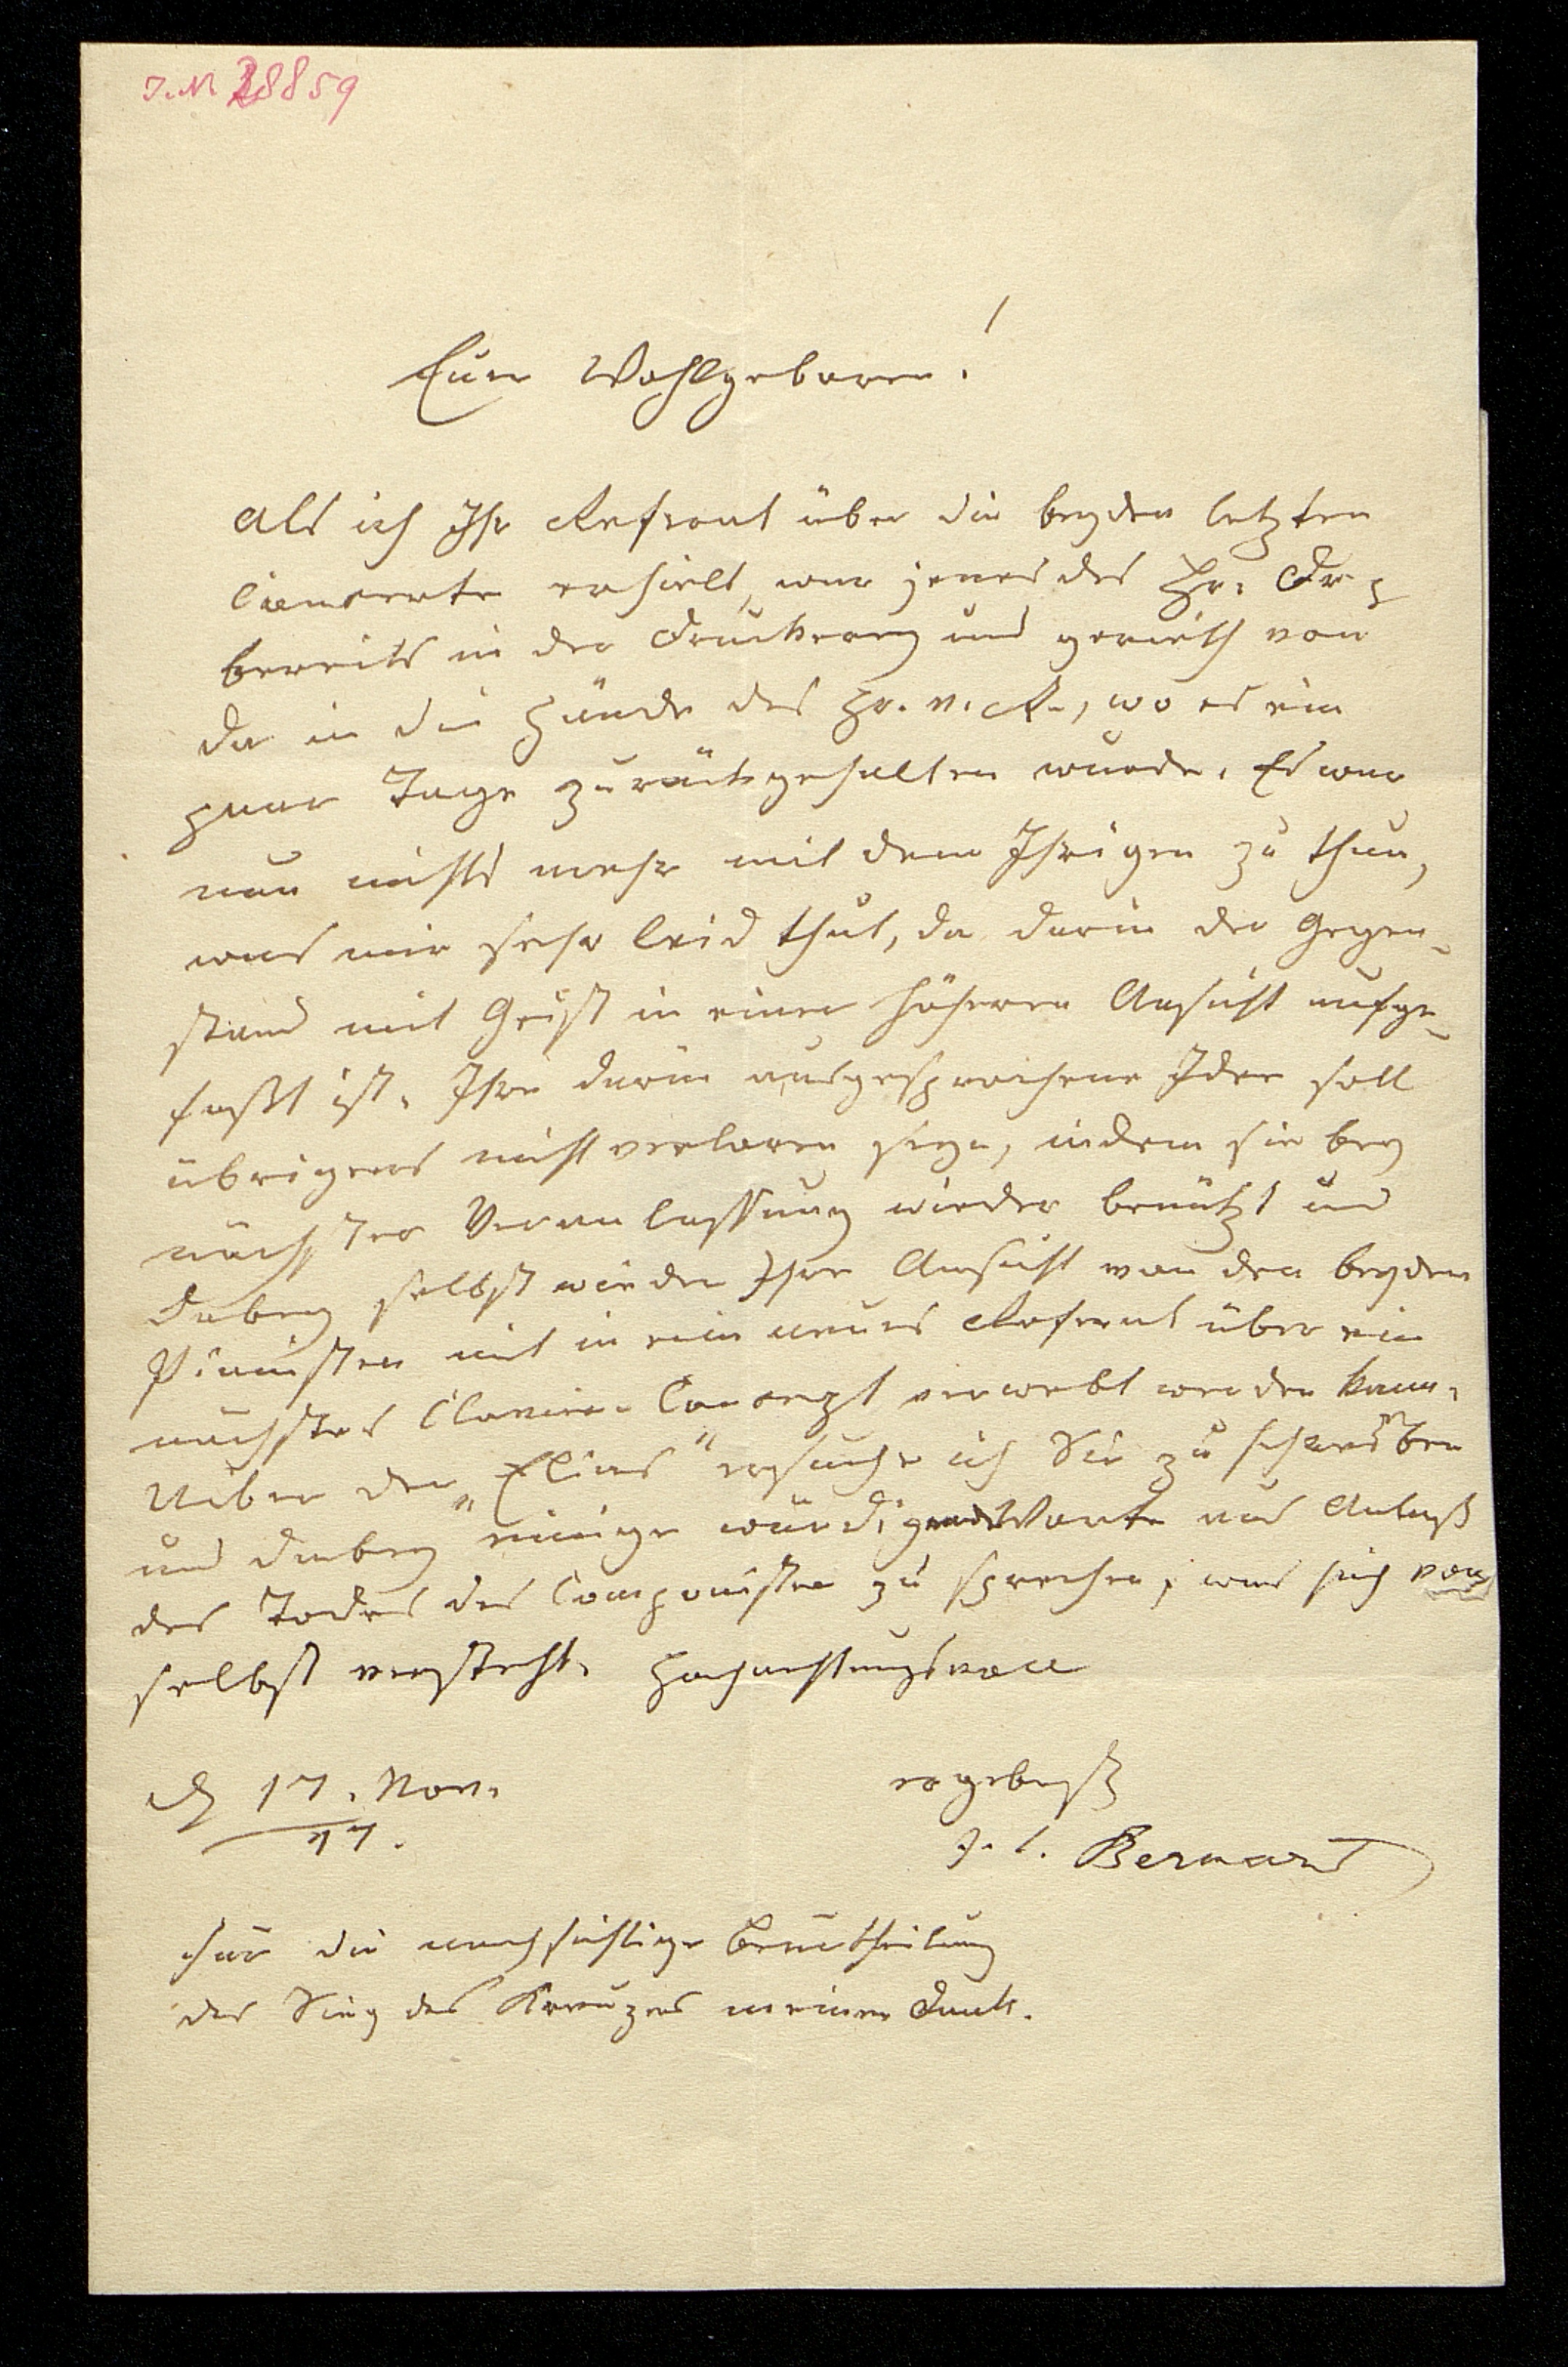 J.N 28859
Euer Wohlgeboren!
Als ich Ihr Referat über die beyden letzten
Concerte erhielt, war jenes des Hr.
bereits in der Druckerey und gerieth von
da in die Hände des Hr. v. R., wo es ein
paar Tage zurückgehalten wurde. Es war
nun nichts mehr mit dem Ihrigen zu thun,
was mir sehr leid thut, da darin der Gegen-
stand mit Geist in einer höheren Ansicht aufge-
faßt ist. Ihre darin ausgesprochene Idee soll
übrigens nicht verloren seyn, indem sie bey
nächster Veranlassung wieder benützt und
dabey selbst wieder Ihre Ansicht von den beyden
Pianisten mit in ein neues Referat über ein
nächstes Clavier-Concept verwebt werden kann.
Ueber den „Elias" ersuche ich Sie zu schreiben
und dabey einige würdigende Worte aus Anlaß
des Todes des Componisten zu sprechen, was sich von
selbst versteht. Hochachtungsvoll
d 17. Nov.
47.
ergebenst
J. C. Bernard
Für die nachsichtige Beurtheilung
des Sieg des Kreuzes meinen Dank.